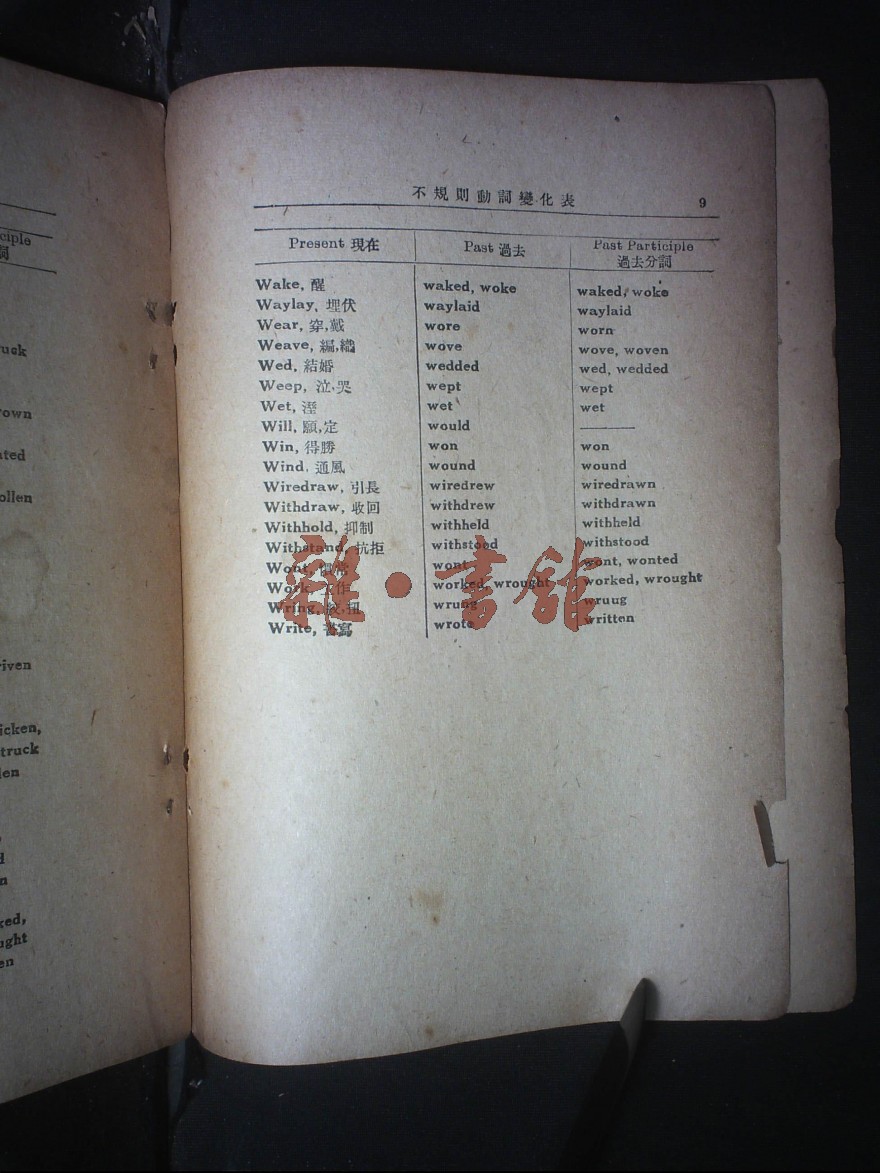 不規則動詞變化表 9
Present 現在 Past 過去 Past Participle 過去分詞
Wake, 醒 waked, woke waked, woke
Waylay, 埋伏 waylaid waylaid
Wear, 穿,戴 wore worn
Weave, 編,織 wove wove, woven
Wed, 結婚 wedded wed, wedded
Weep, 泣,哭 wept wept
Wet, 溼 wet wet
Will, 願,定 would ———
Win, 得勝 won won
Wind, 通風 wound wound
Wiredraw, 引長 wiredrew wiredrawn
Withdraw, 收回 withdrew withdrawn
Withhold, 抑制 withheld withheld
Withstand, 抗拒 withstood withstood
Wont, wont wont, wonted
Work, 工作 worked, wrought worked, wrought
Wring, wrung wruug
Write, 書寫 wrote written
雜·書館
ciple
詞
ruck
own
ated
ollen
riven
icken,
truck
len
ked,
ught
en